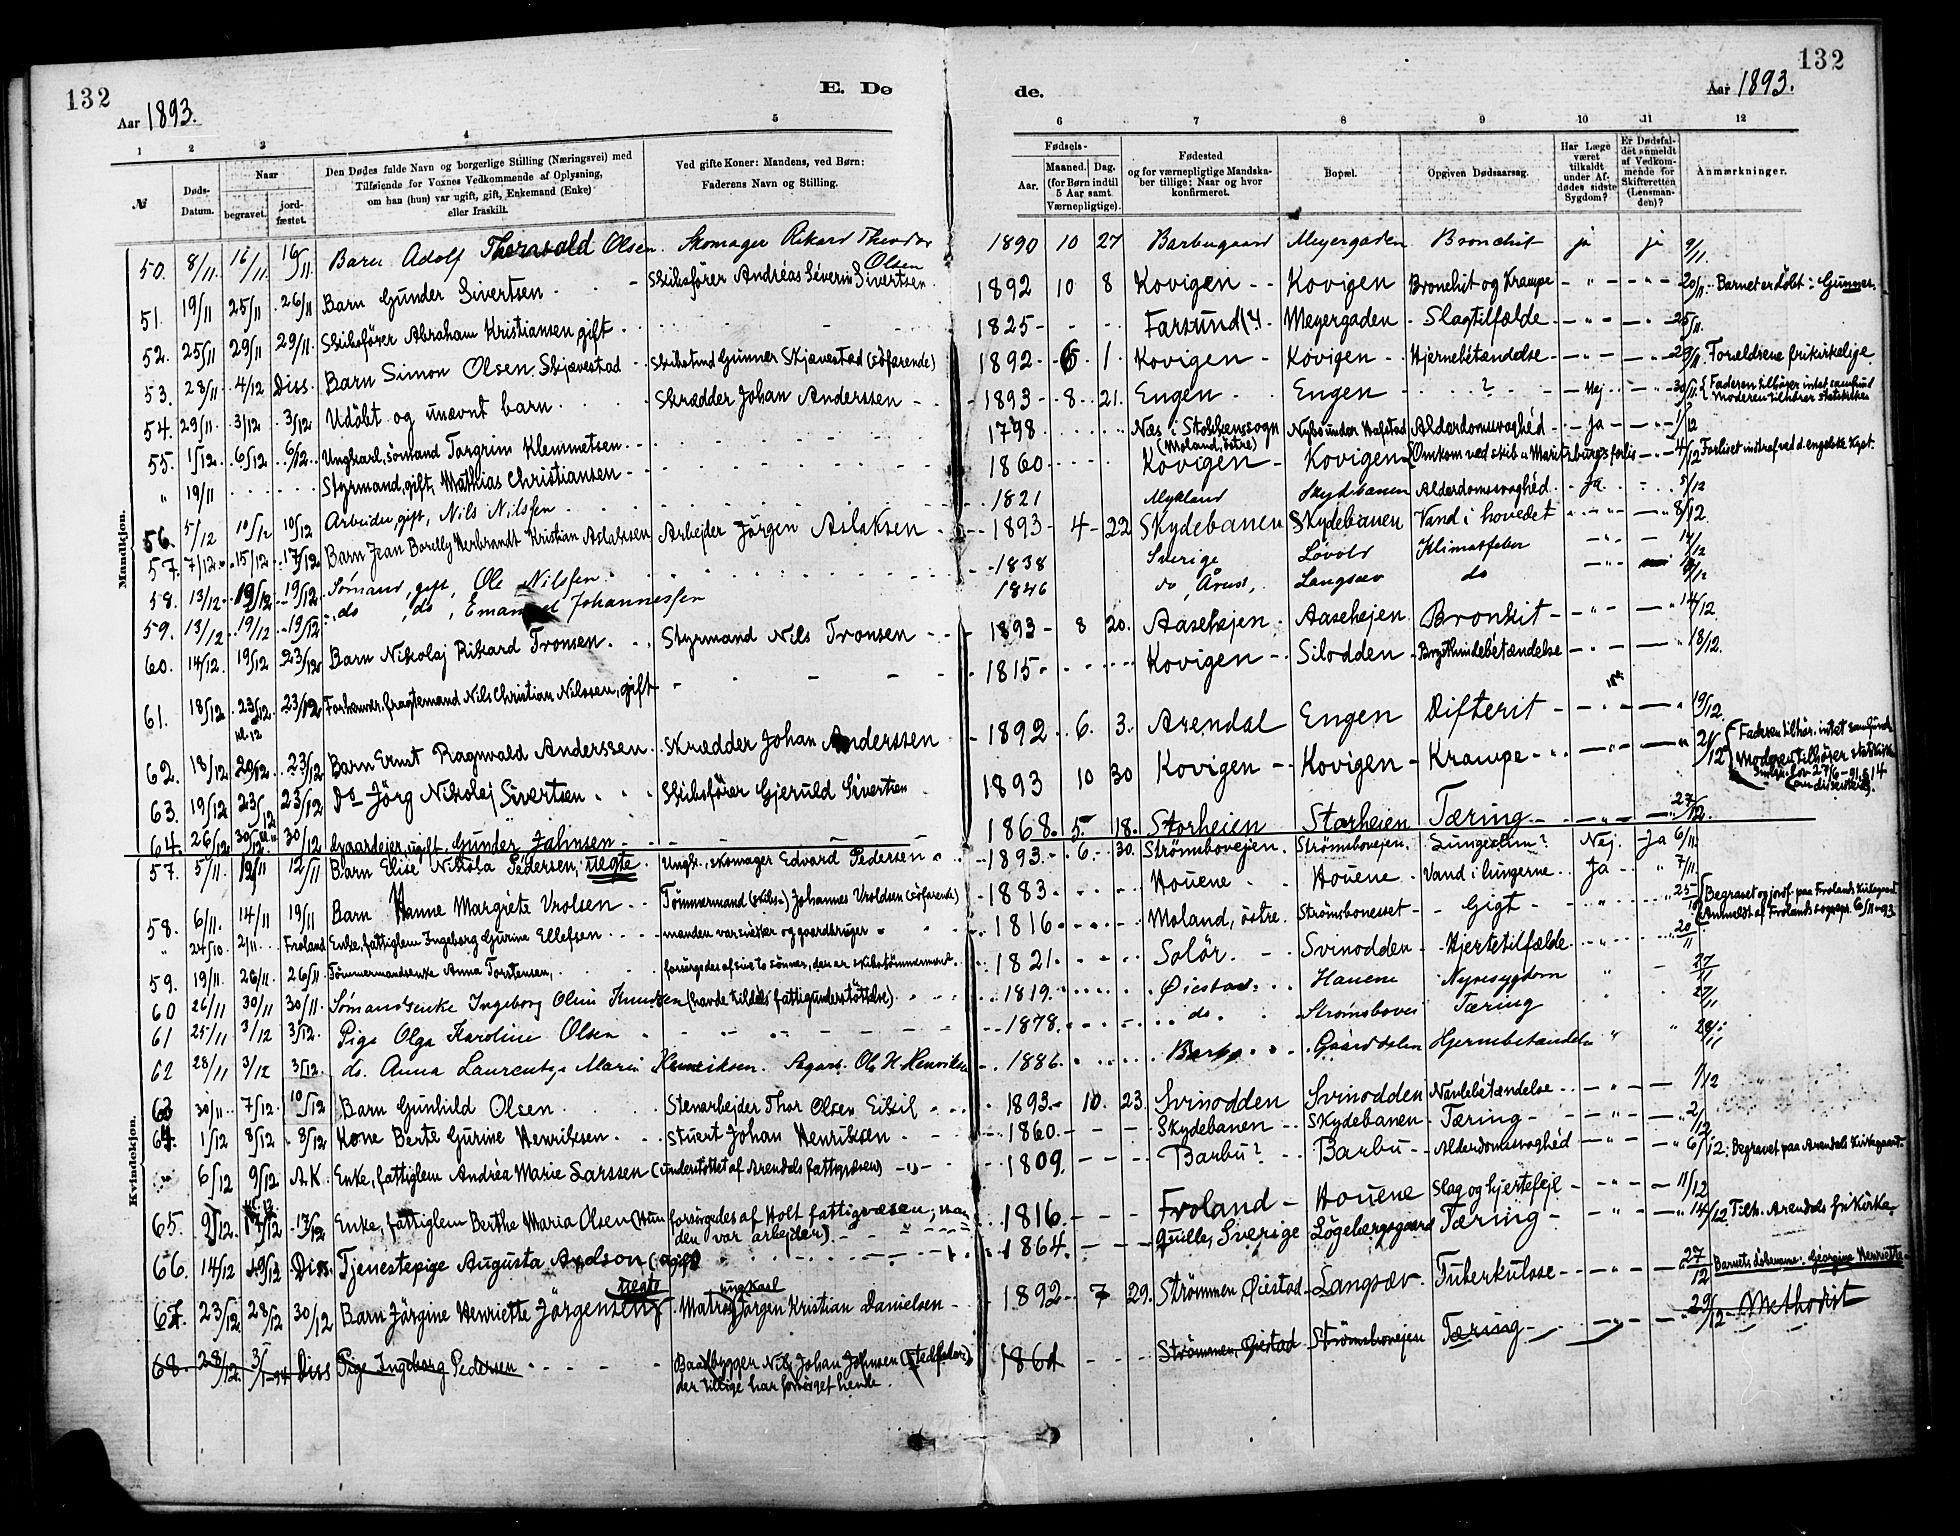 132
132
Aar 1893.
E. Dø
de.
Aar 1893.
1 2 3 4 5 6 7 8 9 10 11 12
№
Døds-Datum.
Naar
begravet.
jordfæstet.
Den Dødes fulde Navn og borgerlige Stilling (Næringsvei) med
Tilføiende for Voxnes Vedkommende af Oplysning,
om han (hun) var ugift, gift, Enkemand (Enke)
eller fraskilt.
Ved gifte Koner: Mandens, ved Børn:
Faderens Navn og Stilling.
Fødsels-
Aar.
Maaned. Dag.
(for Børn indtil
5 Aar samt
Værnepligtige).
Fødested
og for værnepligtige Mandska-
ber tillige: Naar og hvor
konfirmeret.
Bopæl.
Opgiven Dødsaarsag.
Har Læge
været
tilkaldt
under Af-
dødes sidste
Sygdom?
Er Dødsfal-
det anmeldt
af Vedkom-
mende for
Skifteretten
(Lensman-
den)?
Anmærkninger.
Mandkjøn.
50. 8/11 16/11 16/11 Barn Adolf Thorvald Olsen. Skomager Rikard Theodor Olsen 1890 10 27 Barbugaard Meyergaden Bronchit ja ja 9/11
51. 19/11 25/11 26/11 Barn Gunder Sivertsen Skibsfører Andréas Séverin Sivertsen 1892 10 8 Kovigen Kovigen Bronchit og Krampe 20/11 Barnet er døbt: Gunner.
52. 25/11 29/11 29/11 Skibsfører Abraham Kristiansen, gift 1825 Farsund (?) Meyergaden Slagtilfælde 25/11
53. 28/11 4/12 Diss. Barn Simon Olsen Skjævestad Skibstmd Gunner Skjævestad (söfarende) 1892 6 1 Kovigen Kovigen Hjernebétændelse 29/11 Forældrene frikirkelige
54. 29/11 3/12 3/12 Udöbt og unævnt barn Skrædder Johan Anderssen 1893 8 21 Engen Engen ? Nej 30/11 Faderen tilhører intet samfund Moderen tilhører statskirken
55. 1/12 6/12 6/12 Ungkarl, sömand Torgrim Klemmetsen 1798 Næs i Stokkensogn (Moland, östre) Alderdomssvaghéd Ja 1/12
" 19/11 Styrmand, gift, Mathias Christiansen 1860 Kovigen Kovigen Omkom ved skib 4/12
56. 5/12 10/12 10/12 Arbeider, gift, Nils Nilssen 1821 Mykland Skydebanen Alderdomssvaghéd Ja 5/12
57. 7/12 15/12 17/12 Barn Jean Borelly Herbrandt Kristian Aslaksen Arbejder Jörgen Aslaksen 1893 4 22 Skydebanen Skydebanen Vand i hovedet 8/12
58. 13/12 19/12 19/12 Sømand, gift, Ole Nilssen 1838 Sverige Løvold Klimatfeber 14/12
59. 13/12 19/12 19/12 do do, Emanuel Johannessen 1846 do Langsæv do
60. 14/12 19/12 23/12 Barn Nikolaj Rikard Tronsen Styrmand Nils Tronsen 1893 8 20 Aasehejen Aasehejen Bronkit 14/12
61. 18/12 23/12 kl. 12 23/12 Forhenvær. fragtemand Nils Christian Nilssen, gift 1815 Kovigen Silodden Brysthindebétændelse 18/12
62. 18/12 20/12 23/12 Barn Ernst Ragnvald Anderssen Skrædder Johan Anderssen 1892 6 3 Arendal Engen Difterit 19/12 Faderen tilhør. intet samfund Moderen tilhører statskirken
63. 19/12 23/12 23/12 Do Jörg Nikolej Sivertsen Skibsfører Gjeruld Sivertsen 1893 10 30 Kovigen Kovigen Krampe 21/12
64. 26/12 30/12 30/12 Gaardejer, ugift, Gunder Jahnsen 1868 5 18 Storheien Storheien Tæring 27/12
Kvindekjøn.
57. 5/11 12/11 12/11 Barn Elise Nikola Pedersen, uegte Ungk., skomager Edvard Pedersen 1893 6 30 Strömsbovejen Strömsbovejen Nej Ja 6/11
58. 6/11 14/11 19/11 Barn Hanne Margréte Vrolsen Tömmermand (skibs-) Johannes Vroldsen (söfarende) 1883 Houene Houene Vand i lungerne Ja 7/11
" 24/10 2/11 Froland Enke, fattiglem Ingeborg Gurine Ellefsen manden var inderst og gaardbruger 1816 Moland, östre Strömsbonesset Gigt 25/10 Begravet og jordf. paa Frolands Kirkegaard Anmeldt af Frolands sognepr. 6/11-93
59. 19/11 26/11 26/11 Tömmermandsenke Anna Torstensen, forsörgedes af sine to sönner, den er skibstömmermænd 1821 Solör Svinodden Hjertetilfælde 20/11
60 26/11 30/11 30/11 Sømandsenke Ingeborg Olini Knudsen (havde tildels fattigunderstöttelse) 1819 Øiestad Hauene Nyresygdom 27/11
61 25/11 3/12 3/12 Pige Olga Karoline Olsen 1878 do Strømsbovei Tæring 27/11
62 28/11 3/12 3/12 do. Anna Laurentze Marie Henriksen. Sagarb. Ole H. Henriksen 1886 Barbo Gaarddalen Hjernebetændelse 28/11
63 30/11 7/12 10/12 Barn Gunhild Olsen Stenarbejder Thor Olsen Eikil 1893 10 23 Svinodden Svinodden Navlebétændelse 1/12
64. 1/12 8/12 8/12 Kone Berte Gurine Henriksen Stuert Johan Henriksen 1860 Skydebanen Skydebanen Tæring 2/12
" 6/12 9/12 A.K. Enke, fattiglem Andréa Marie Larssen (understöttet af Arendals fattigvæsen) 1809 Barbu? Barbu Alderdomssvaghéd 6/12 Begravet paa Arendals Kirkegaard
65. 9/12 17/12 kl. 12 17/12 Enke, fattiglem Berthe Maria Olsen (Hun forsörgedes af Holt fattigvæsen; manden var arbejder) 1816 Froland Houene Slag og hjertefejl 11/12
66. 14/12 19/12 Diss. Tjenestepige Augusta Axelson (ugift) 1864 Qville, Sverige Lögebergsgaard Tæring 14/12 Tilh. Arendals frikirke
67. 23/12 28/12 30/12 Barn Jörgine Henriette Jörgensen uegte ungkarl Matros Jörgen Kristian Danielsen 1892 7 29 Strömmen, Øiestad Langsæv Tuberkulose 27/12 Barnets döbenavn: Georgine Henriette
68. 28/12 3/1-94 Diss Pige Ingeborg Pedersen Baadbygger Nils Johan Johnsen (stedfader) der tillige har forsörget hende. 1861 Strömmen, Øiestad Strömsbovejen Tæring 29/12 Methodist